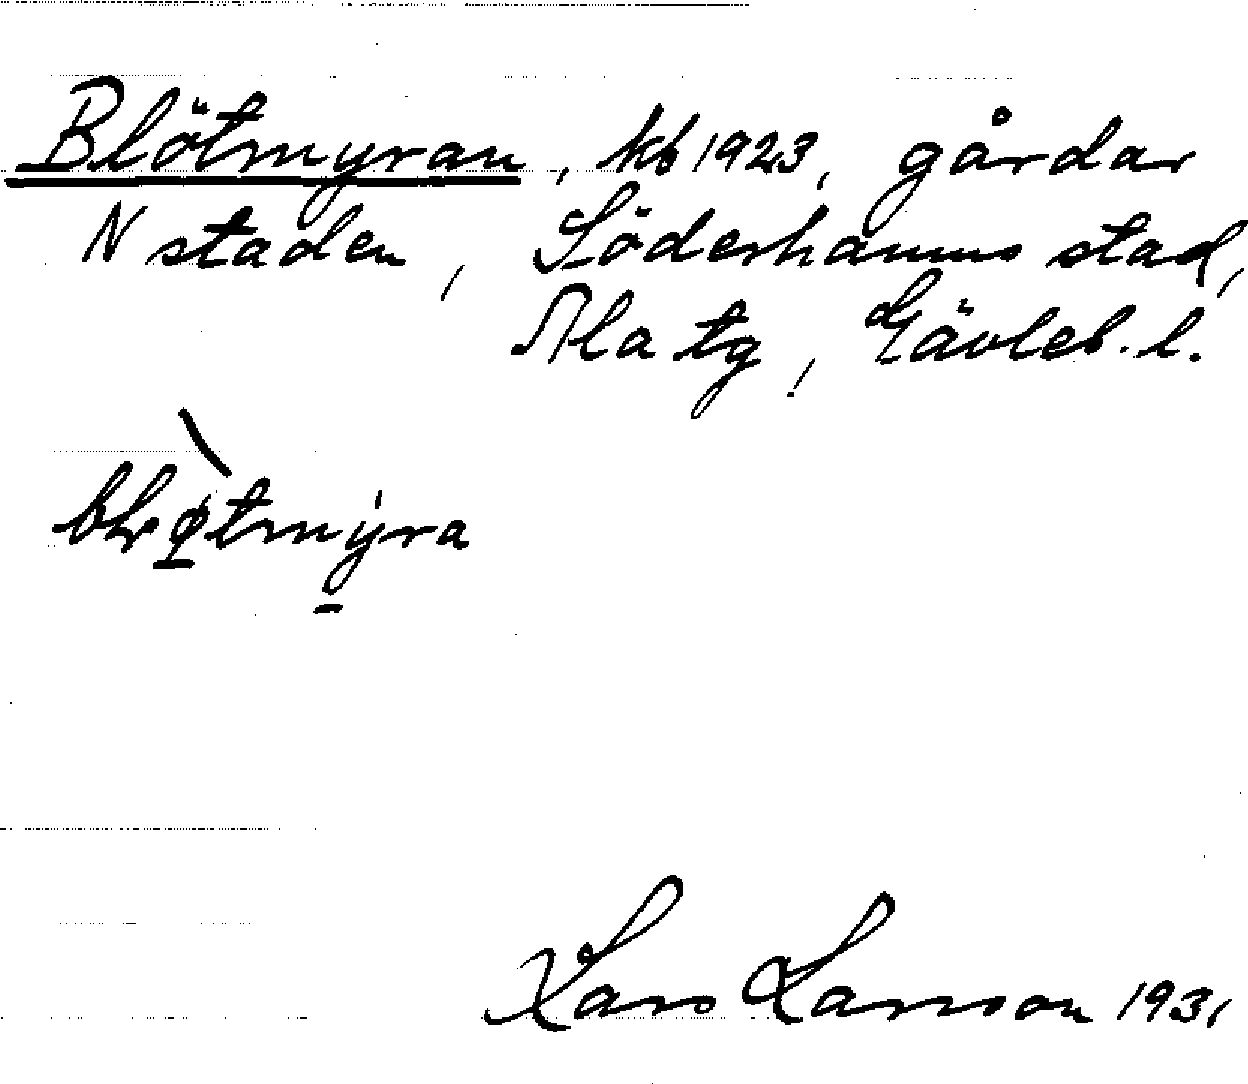 Blötmyran, kb 1923, gårdar
N staden, Söderhamns stad,
Ala tg, Gävleb. l.
bløtmyra
Lars Larsson 1931